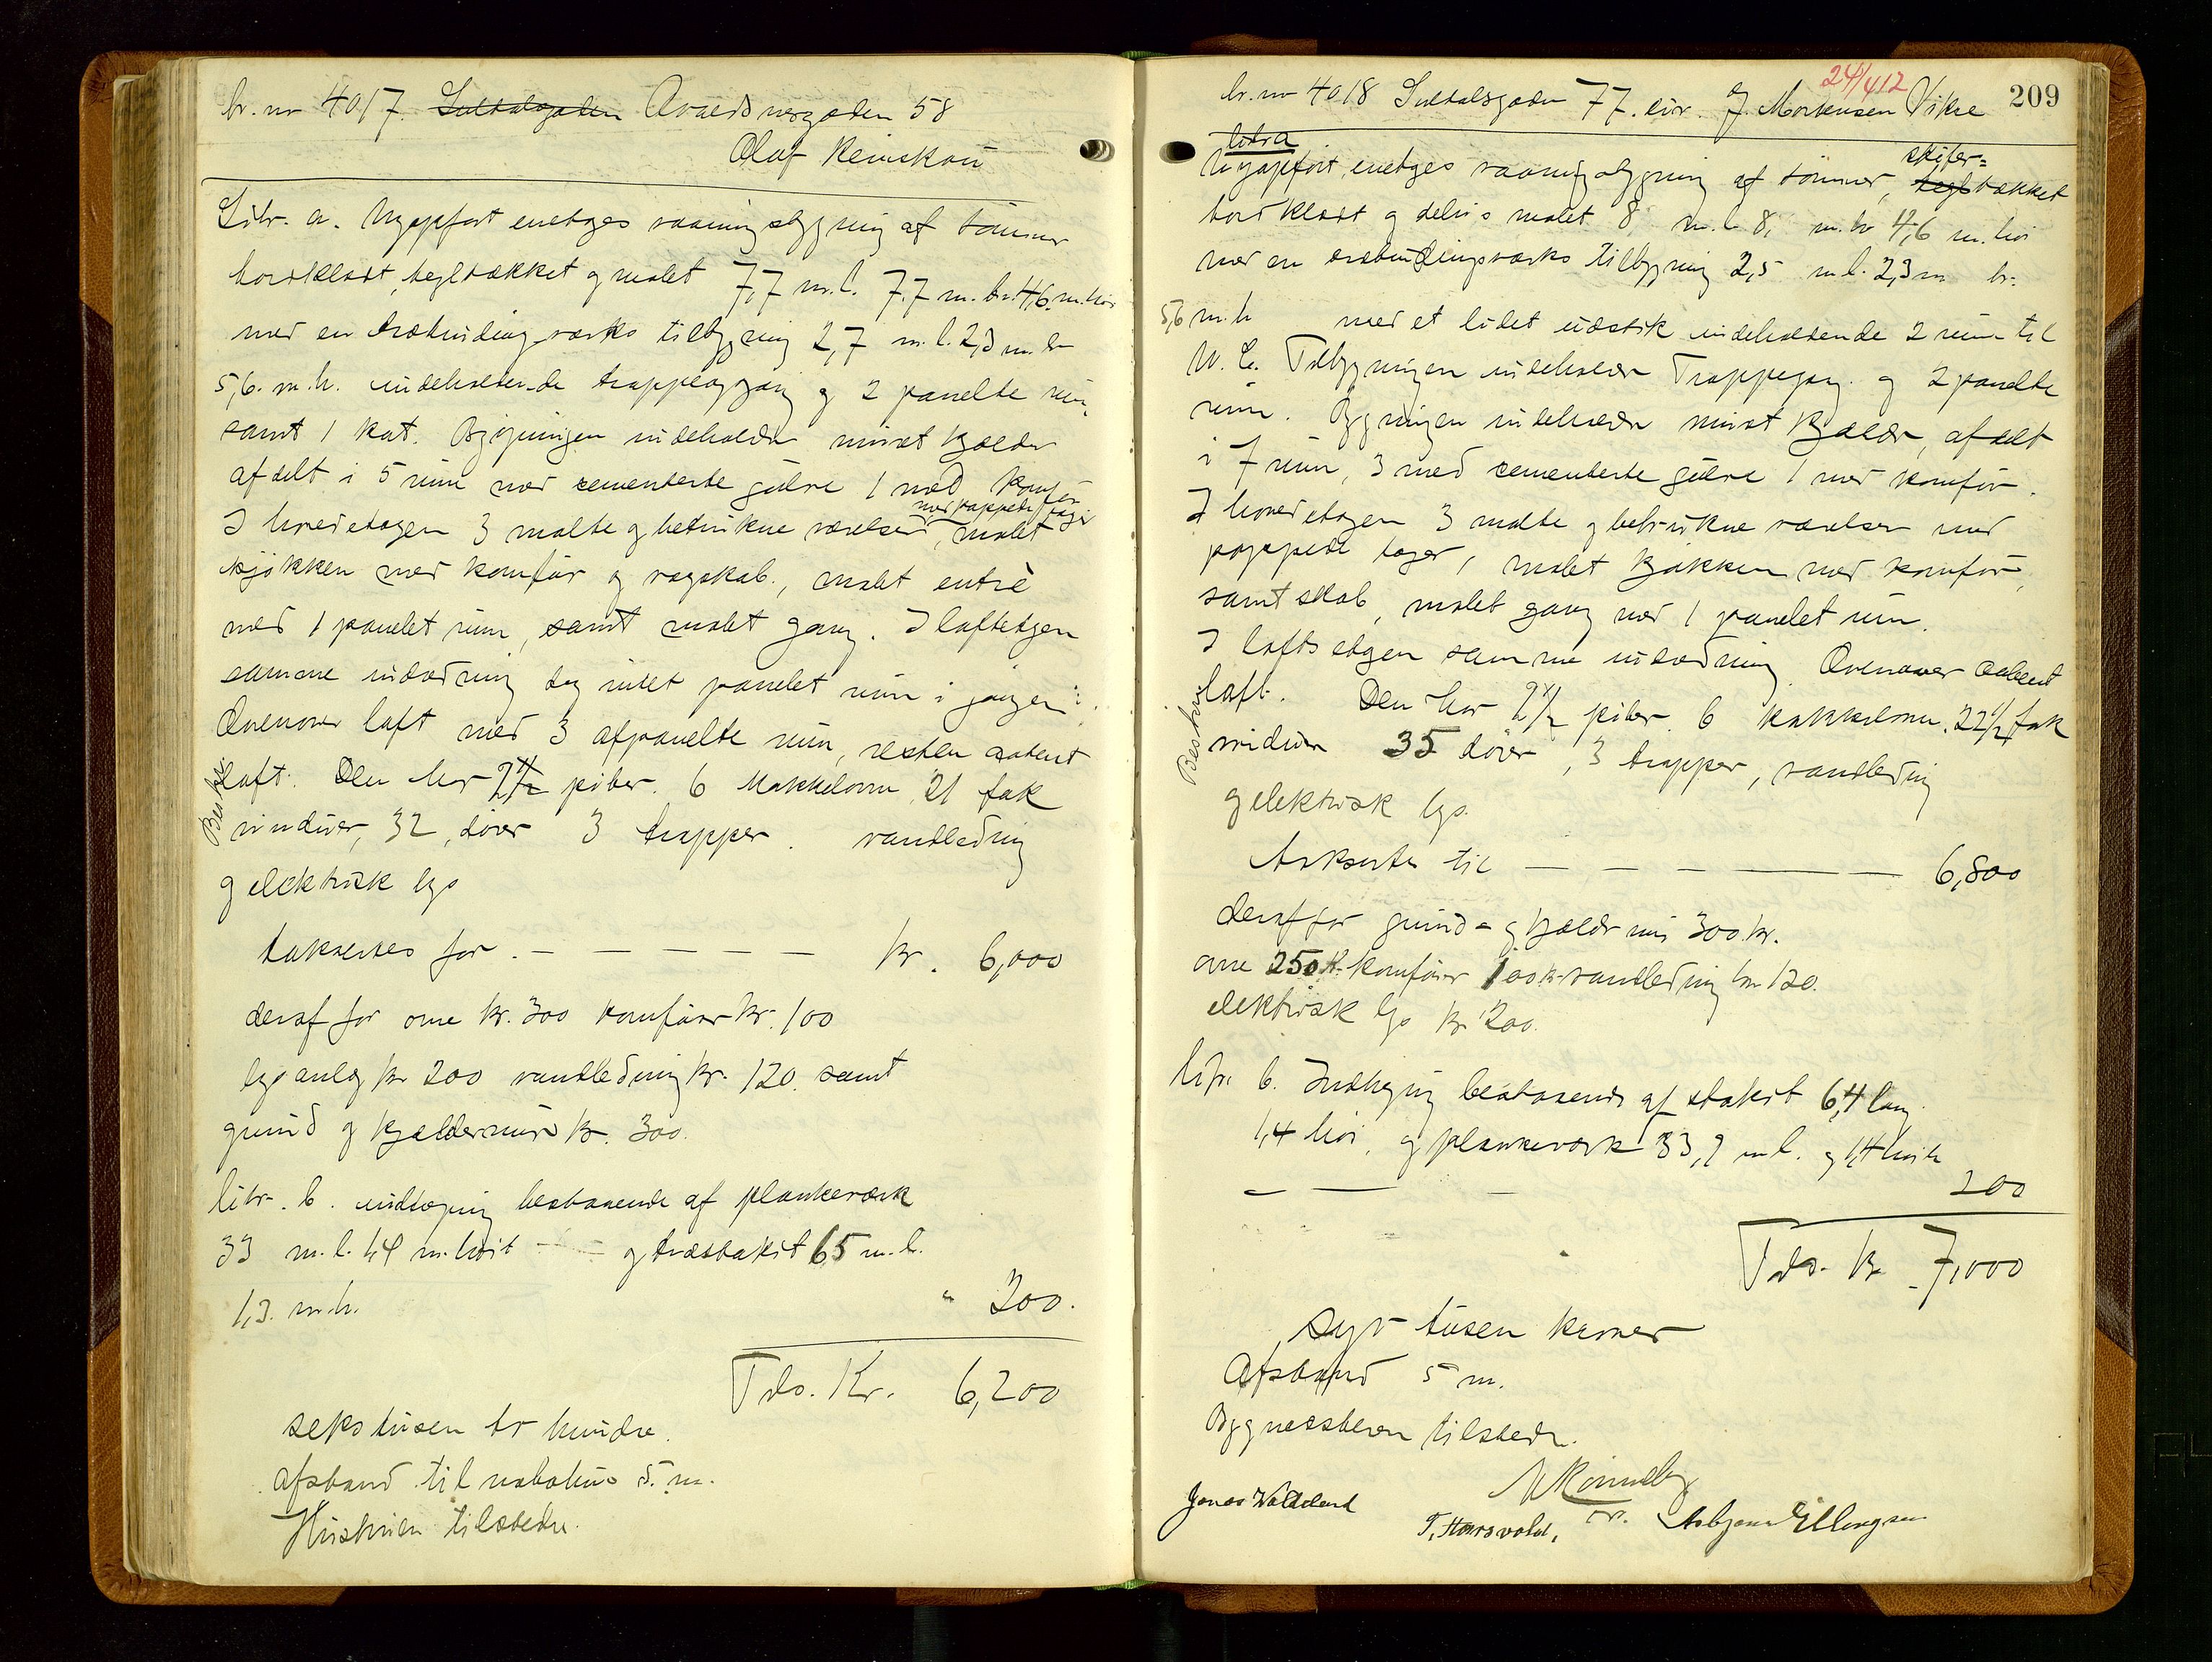 br. nr 4017. Suldalsgaden Avaldsnesgaden 58
Olaf Reinskou
Litr. a. Nyopført enetages vaaningsbygning af tømmer
bordklædt, tegltækket og malet 7,7 m. l. 7.7 m. br. 4,6. m. høi
med en træbindingsværks tilbygning 2,7 m. l. 2,3 m. br
5,6. m. h. indeholdende trappeopgang og 2 panelte rum,
samt 1 kat. Bygningen indeholder muret kjælder
afdelt i 5 rum med cementerte gulve 1 med komfur
med pappede tage
I hovedetagen 3 malte og betrukne værelser, malet
kjøkken med komfür og vegskab., malet entrè
med 1 panelet rum, samt malet gang. I loftetagen
samme indredning dog intet panelet rum i gangen.
Ovenover loft med 3 afpanelte rum, resten aabent
loft. Den har 2 1/2 piber. 6 kakkelovne, 21 fak
Beskr.
vinduer, 32, døre 3 trapper. vandledning
og elektrisk lys
takseres for. — — — — — — kr. 6,000
deraf for ovne kr. 300 komfürer kr. 100
lysanlæg kr 200 vandledning kr. 120. samt
grund og kjældermure kr. 300.
litr. b. indhegning bestaaende af plankeværk
33 m. l. 1,4 m. høit — — og træstakit 6,5 m. l.
1,3. m. h. " 200.
Tils. Kr. 6,200
seks tusen to hundre.
Afstand til nabohus 5. m.
Hustruen tilstede.
24/4 12
209
br. nr 4018 Suldalsgaden 77. eier. J. Mortensen Vikse
litra a
skifer=
Nyopført, enetages vaaningsbygning af tømmer, tegltækket
bordklædt og delvis malet 8 m. l. 8, m. br 4,6 m. høi
med en træbindingsværks tilbygning 2,5 m l. 2,3 m br.
5,6 m. h med et lidet udstik indeholdende 2 rum til
W. C. Tilbygningen indeholder Trappegang og 2 panelte
rum. Bygningen indeholder muret kjælder, afdelt
i 7 rum, 3 med cementerte gulve 1 med komfür.
I hovedetagen 3 malte og betrukne værelser med
pappede tager, malet kjøkken med komfür,
samt skab, malet gang med 1 panelet rum.
I loftsetagen samme indredning. Ovenover aabent
loft. Den har 2 1/2 piber 6 kakkelovne. 22 1/2 fak
Beskr.
vinduer 35 døre, 3 trapper, vandledning
og elektrisk lys.
takseres til — — — — — — 6,800
deraf for grund- og kjældermur 300. kr.
ovne 250 k. komfürer 100 kr. vandledning kr 120.
elektrisk lys kr 200.
litr. b. Indhegning bestaaende af stakit 6,4 lang
1,4 høi, og plankeværk 33,2 m l. og 1,4 høit
— — — 200
Tils. kr 7,000
syv tusen kroner
Afstand 5 m.
Bygmesteren tilstede.
Jonas Waldeland
T. Horsvold,
Asbjørn Ellingsen